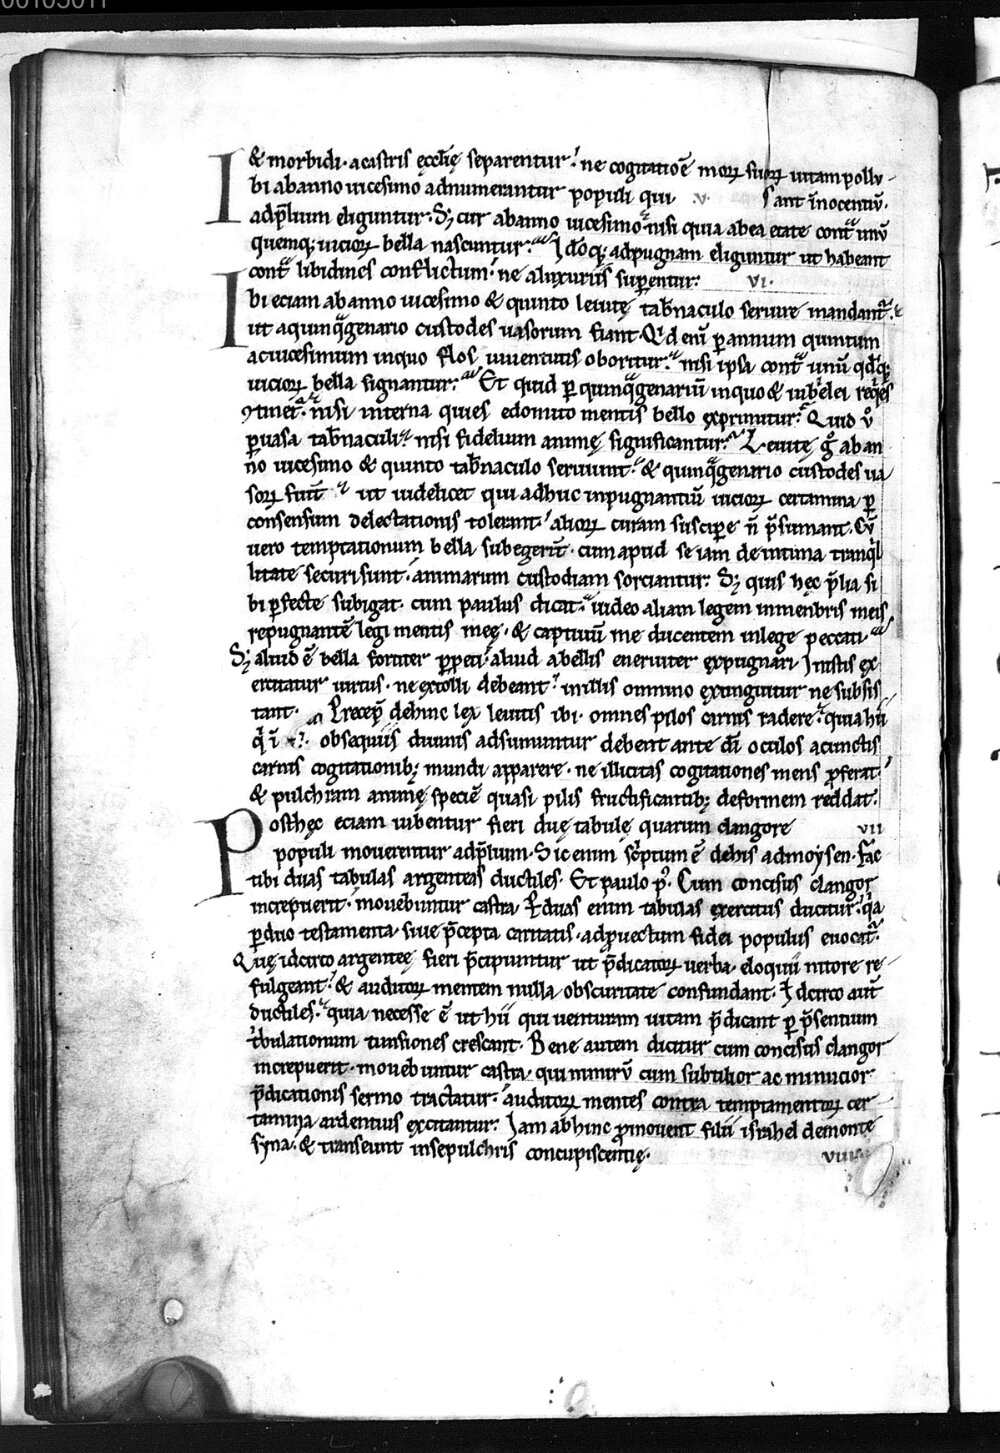 & morbidi· a castris ęcclię separentur: ne cogitatioē morꝝ suoꝝ uitam pollu-
Ibi ab anno uicesimo adnumerantur populi qui v. sant īnocentiū.
ad p̄lium eliguntur· Sꝫ cur ab anno uicesimo nisi quia ab ea etate cont̄ unū
quemqꝫ uicioꝝ bella nascuntur: Idoqꝫ ad pugnam eliguntur ut habeant
cont̄ libidines conflictum: ne a luxuriis sup̄entur: VI.
Ibi eciam ab anno uicesimo & quinto leuitę tab̄naculo seruire mandant̄
ut a quinqͣgenario custodes uasorum fiant· Qͥd enī ꝑ annum quintum
ac uicesimum in quo flos iuuentutis oboritur: nisi ipsa cont̄ unū qͦdqꝫ
uicioꝝ bella signantur: Et quid ꝑ quinqͣgenariū in quo &
ꝯtinet· nisi interna quies edomito mentis bello exprimitur: Quid ů
ꝑ uasa tab̄naculi nisi fidelium animę significantur: Leuitę g̊ ab an
no uicesimo & quinto tab̄naculo seruiunt· & quinqͣgenario custodes ua
soꝝ fiunt ut uidelicet qui adhuc inpugnantiū uicioꝝ certamina ꝑ
consensum delectationis tolerant· alioꝝ curam suscipe n̄ p̄sumant· Cū
uero temptationum bella subegerint̄· cum apud se iam de intima tranqͥl
litate securi sunt· animarum custodiam sorciantur: Sꝫ quis hęc p̄lia si
bi ꝑfecte subigat· cum paulus dicat· uideo aliam legem in menbris meis
repugnantē legi mentis meę· & captiuū me ducentem in lege peccati·
Sꝫ aliud ē bella fortiter ꝑpeti· aliud a bellis eneruiter expugnari· In istis ex
ercitatur uirtus· ne extolli debeant: in illis omnino extinguitur ne subsis
tant· dehinc lex leuitis ibi· omnes pilos carnis radere· quia hii
qͥ ī obsequiis diuinis adsumuntur debent ante dī oculos a cunctis
carnis cogitationibꝫ mundi apparere· ne illicitas cogitationes mens ꝓferat·
& pulchram animę speciē quasi pilis fructificantibꝫ deformem reddat·
Post hęc eciam iubentur fieri duę tabulę quarum clangore VII
populi mouerentur ad p̄lium· Sic enim sc̄ptum ē de his ad moysen· Fac
tibi duas tabulas argenteas ductiles· Et paulo p̊· Cum concisus clangor
increpuerit· mouebuntur castra· Ꝑ duas enim tabulas exercitus ducitur· qͥa
ꝑ duo testamenta· siue p̄cepta caritatis· ad ꝓuectum fidei populus euocat̄·
Quę idcirco argenteę fieri p̄cipiuntur ut p̄dicatoꝝ uerba· eloquii nitore re-
fulgeant· & auditoꝝ mentem nulla obscuritate confundant· Idcirco aut̄
ductiles· quia necesse ē ut hii qui uenturam uitam p̄dicant ꝑ p̄sentium
tͥbulationum tunsiones crescant· Bene autem dicitur cum concisus clangor
increpuerit· mouebuntur castra· qui nimirū cum subtilior ac minucior
p̄dicationis sermo tractatur· auditoꝝ mentes contra temptamentoꝝ cer-
tamina ardentius excitantur: Iam abhinc ꝓmouent filii israhel de monte
syna· & transeunt in sepulchris concupiscentię·